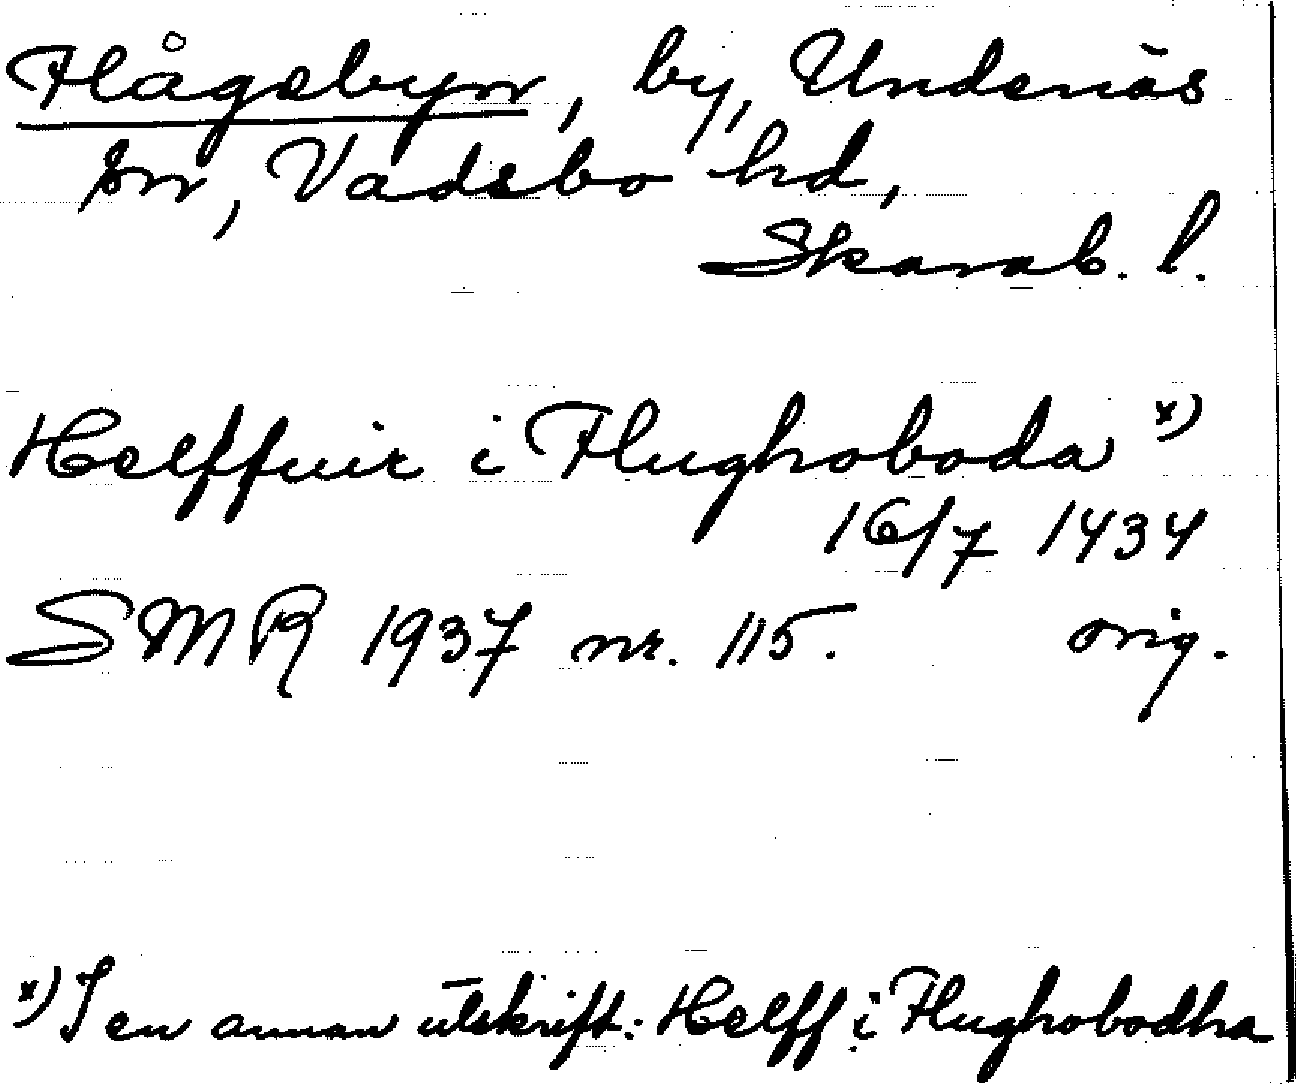 Flågsbyn, by, Undenäs
sn, Vadsbo hd,
Skarab. l.
Helffuir i Flughoboda x)
16/7 1434
SMR 1937 nr. 115. orig.
x) I en annan utskrift: Helff i Flughobodha